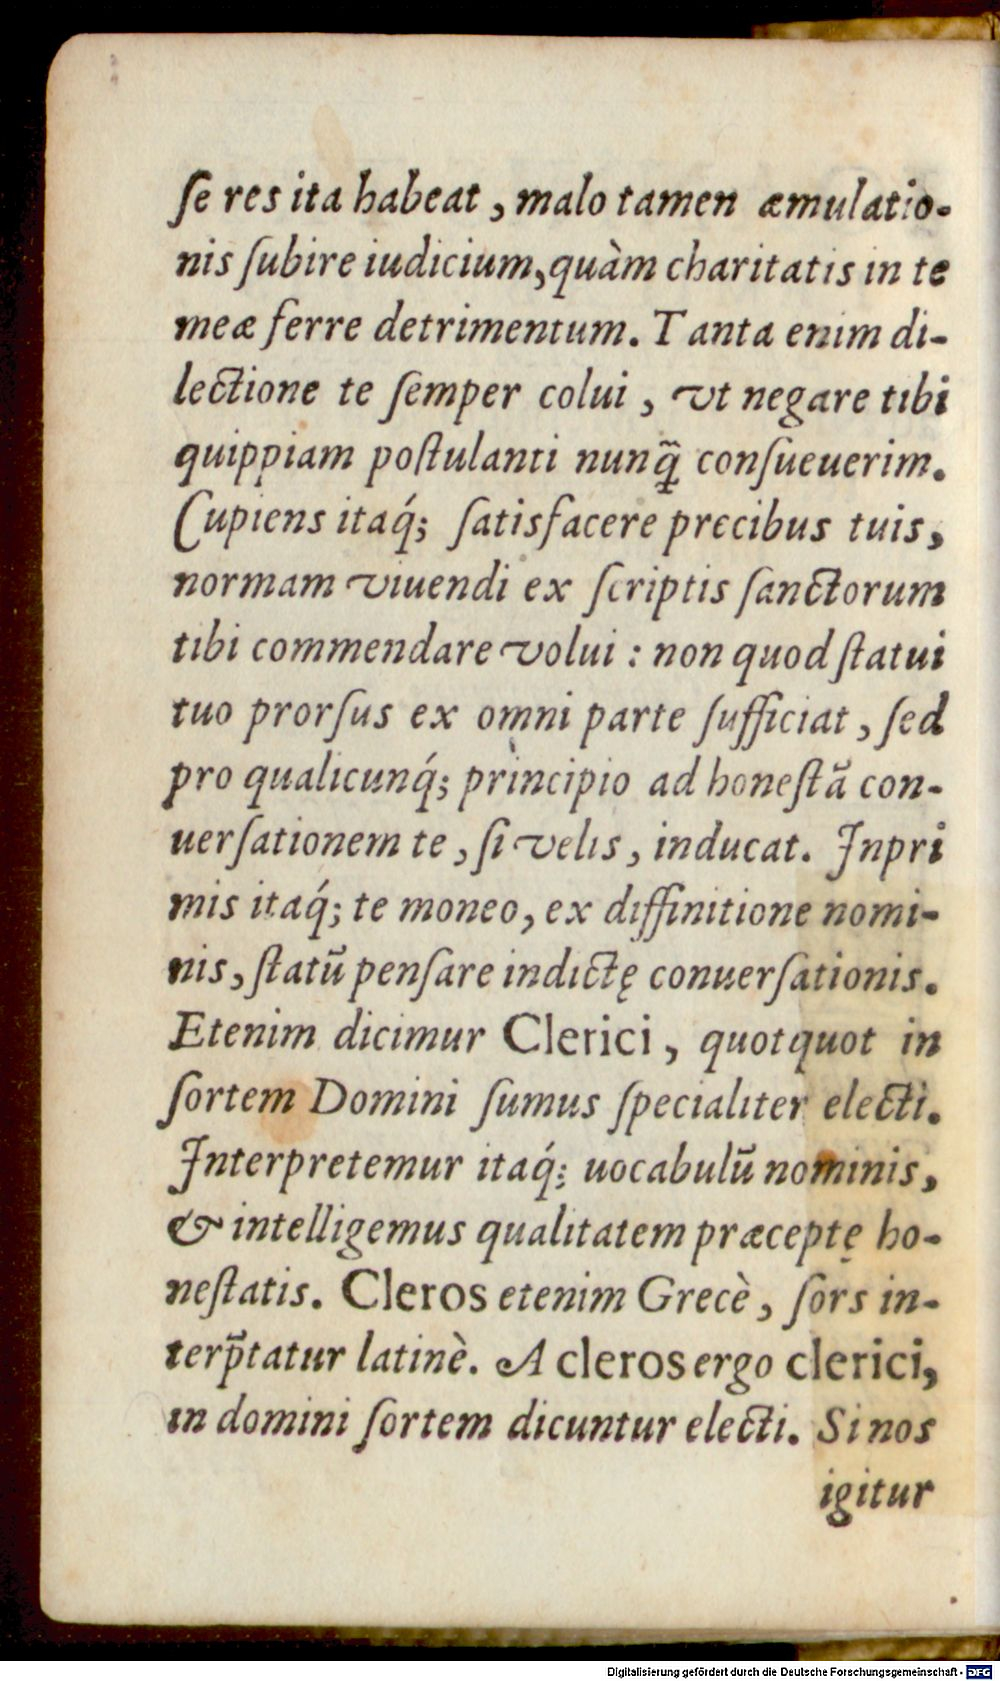 ſe res ita habeat, malo tamen æmulatio-
nis ſubire iudicium, quàm charitatis in te
meæ ferre detrimentum. Tanta enim di-
lectione te ſemper colui, vt negare tibi
quippiam poſtulanti nunq̃ conſueuerim.
Cupiens itaq́; ſatisfacere precibus tuis,
normam viuendi ex ſcriptis ſanctorum
tibi commendare volui: non quod ſtatui
tuo prorſus ex omni parte ſufficiat, ſed
pro qualicunq́; principio ad honeſtā con-
uerſationem te, ſi velis, inducat. Inpri
mis itaq́; te moneo, ex diffinitione nomi-
nis, ſtatū penſare indictę conuerſationis.
Etenim dicimur Clerici, quotquot in
ſortem Domini ſumus ſpecialiter electi.
Interpretemur itaq́; uocabulū nominis,
& intelligemus qualitatem præceptę ho-
neſtatis. Cleros etenim Grecè, ſors in-
terp̄tatur latinè. A cleros ergo clerici,
in domini ſortem dicuntur electi. Si nos
igitur
Digitalisierung gefördert durch die Deutsche Forschungsgemeinschaft - DFG